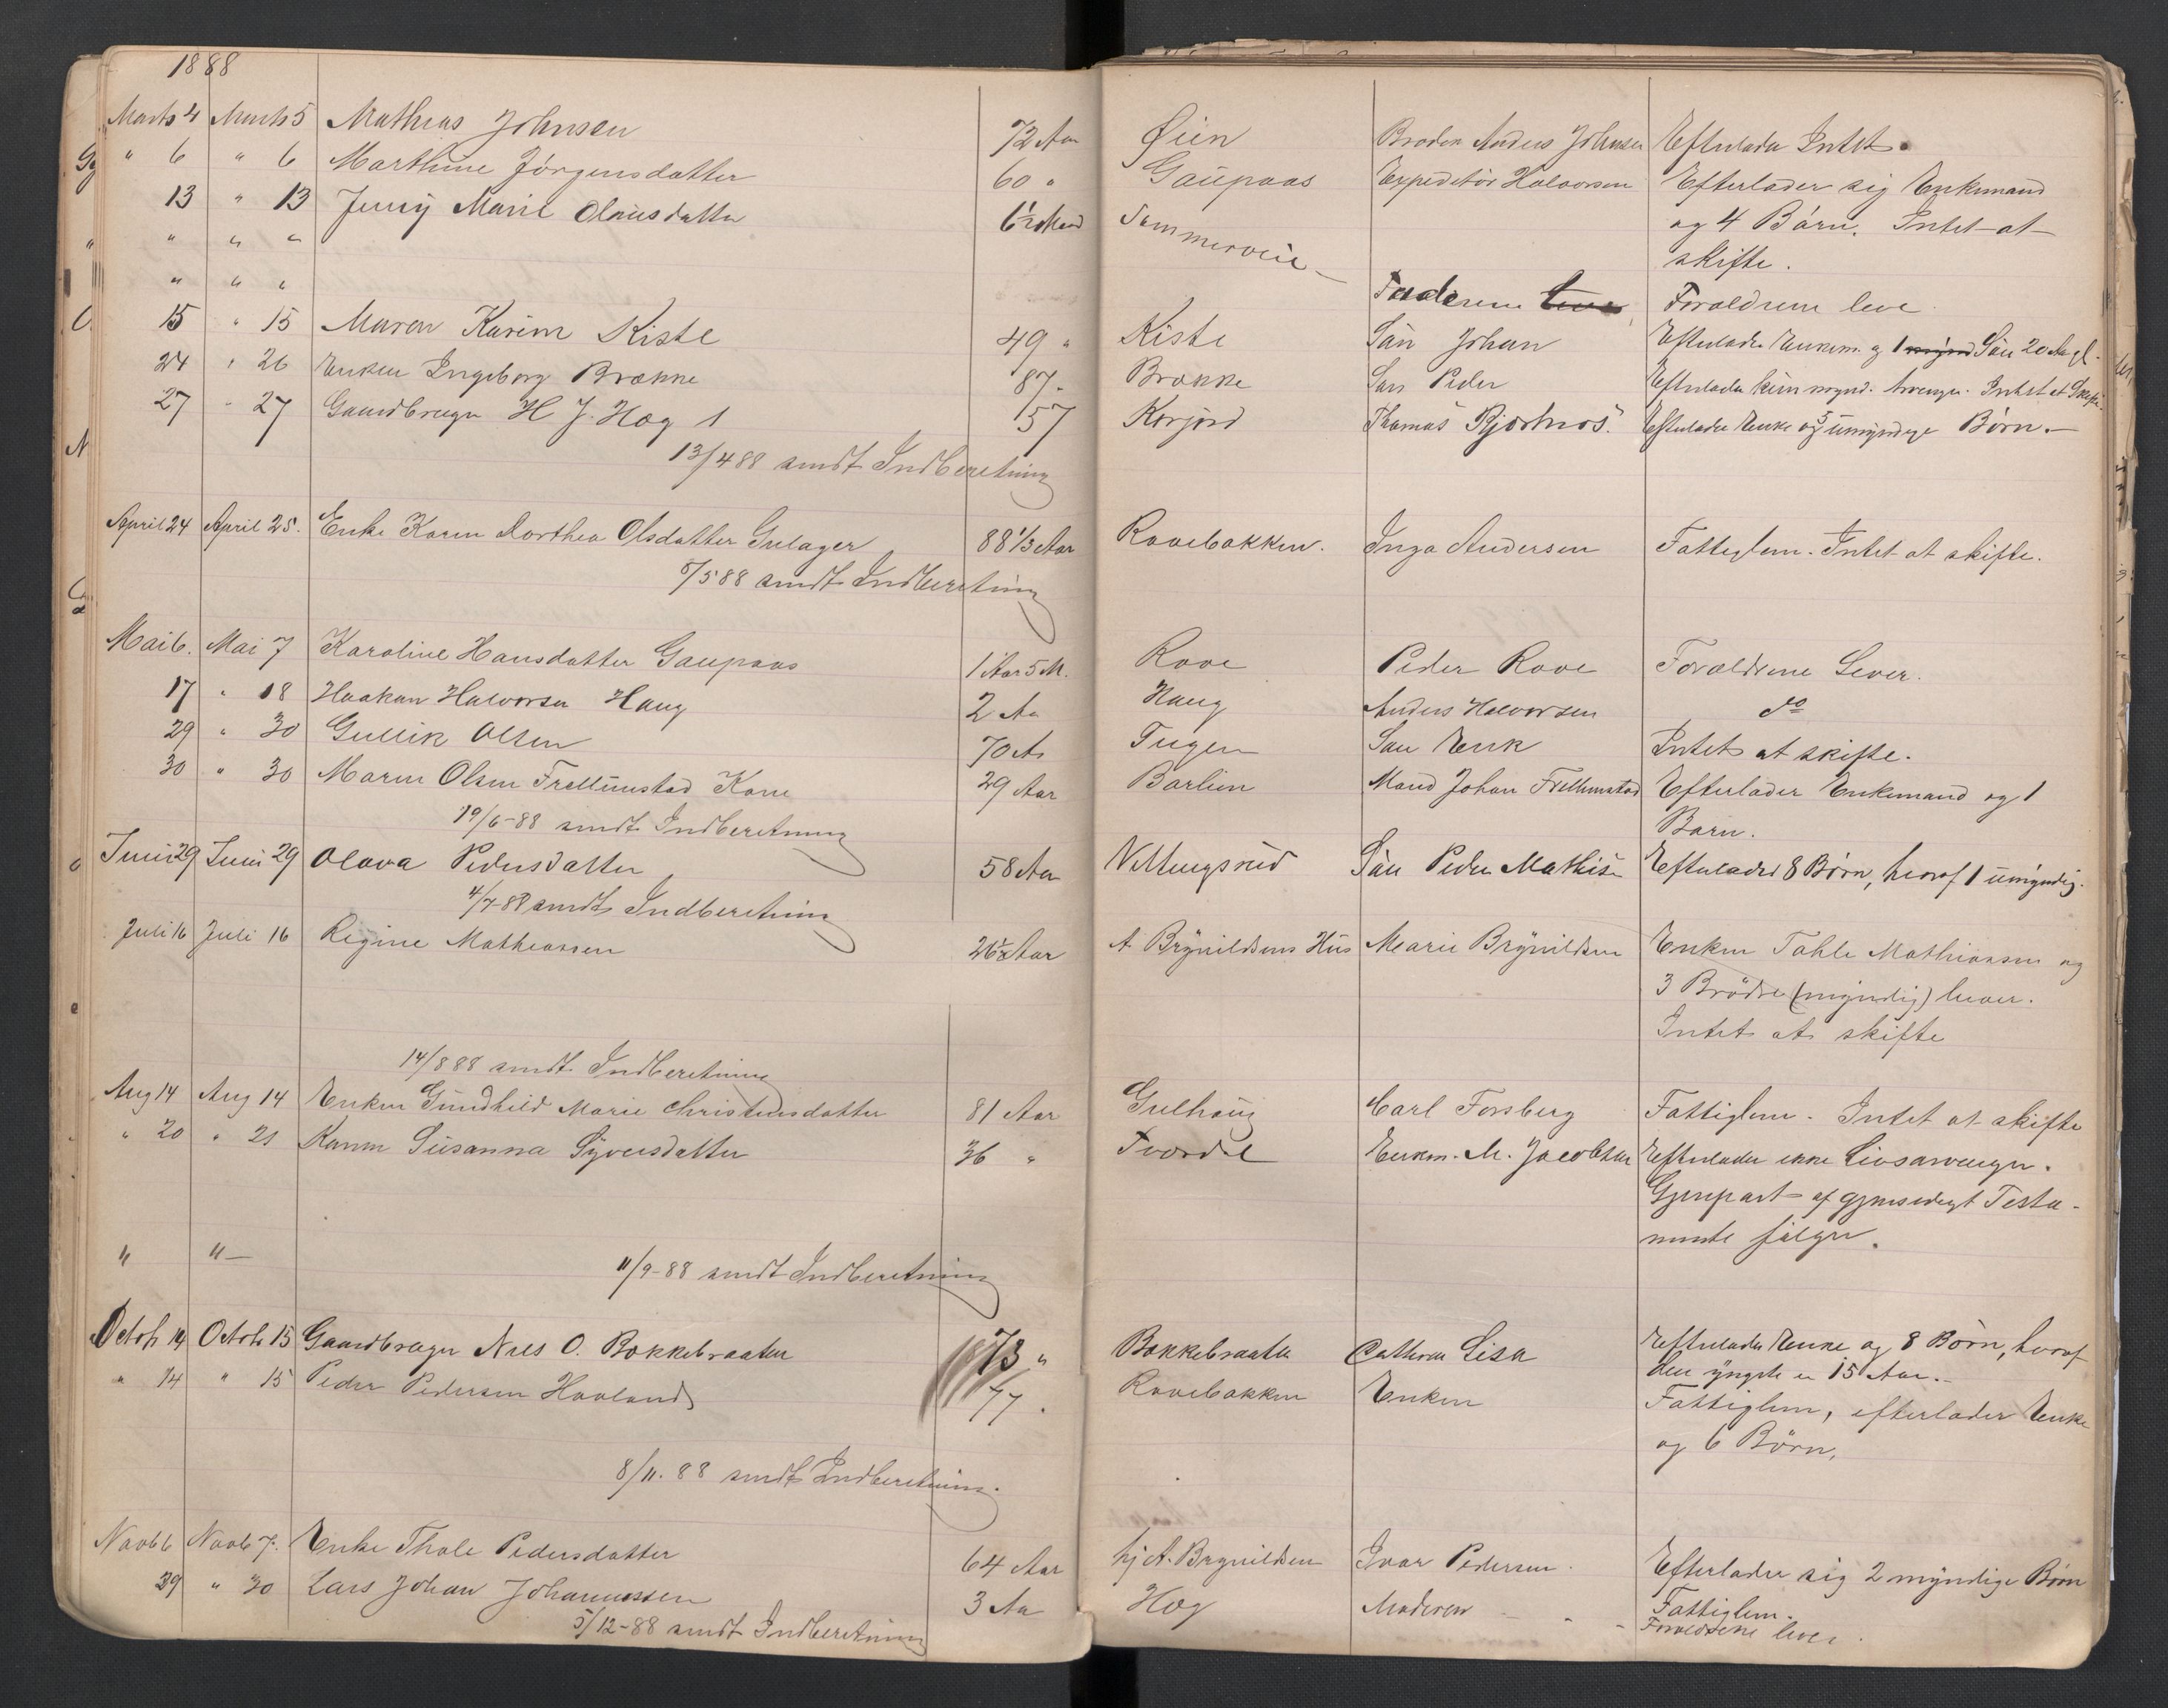 1888
Marts 4 Marts 5 Mathias Johnsen 72 Aar Øien Broder Anders Johnsen Efterlader Intet.
" 6 " 6 Marthine Jörgensdatter 60 " Gaupaas Expeditör Halvorsen Efterlader sig Enkemand
og 4 Börn. Intet at
skifte.
13 " 13 Jenny Marie Olausdatter 6½ Maan Sommerveie Faderen Foraldrene leve
" " "
" " "
15 " 15 Maren Karine Kiste 49 " Kiste Sön Johan Efterlader Enkem. og 1 Sön 20 Aar gl.
24 " 26 Enken Ingeborg Brække 87 " Brække Sön Peder Efterlader kun mynd. Arvinger. Intet at Skifte
27 " 27 Gaardbruger H J. Hog 1 57 Korjord Thomas Bjortnes. Efterlader Enke og 3 umyndige Börn.
13/4 88 sendt Indberetning
April 24 April 25. Enke Karen Dorthea Olsdatter Gulager 88 1/3 Aar Rovebakken. Inga Andersen Fattiglem. Intet at skifte.
5/5 88 sendt Indberetning
Mai 6. Mai 7 Karoline Hansdatter Gaupaas 1 Aar 5 M. Rove Peder Rove Foraldrene Lever.
17 " 18 Haakon Halvorsen Haug 2 Aar Haug Anders Halvorsen do
29 " 30 Gullik Olsen 70 Ar Tugen Sön Erik Intet at skifte.
30 " 30 Maren Olsen Frellumstad Kone 29 Aar Barlien Mand Johan Frellumstad Efterlader Enkemand og 1
Barn.
19/6-88 sendt Indberetning
Juni 29 Juni 29 Olava Pedersdatter 58 Aar Veltungsrud Sön Peder Mathis Efterlader 8 Börn, heraf 1 umyndig.
4/7-88 sendt Indberetning
Juli 16 Juli 16 Regine Mathiassen 26½ Aar A. Brynildsens Hus Marie Brynildsen Enken Tahle Mathiassen og
3 Brödre (myndig) lever.
Intet at skifte
14/8 88 sendt Indberetning
Aug 14 Aug 14 Enken Gundhild Marie Christensdatter 81 Aar Gulhaug Carl Forsberg Fattiglem. Intet at skifte
" 20 " 21 Konen Susanna Syversdatter 36 " Tvordal Enkem. M. Jacobsen Efterlader ikke Livsarvinger.
Gjenpart af gjensidigt Testa-
mente fölger.
" "
11/9-88 sendt Indberetning
Octob 14 Octob 15 Gaardbruger Nils O. Bokkebraaten 73 " Bokkebraaten Cathrine Lisa Efterlader Enke og 8 Börn, heraf
den yngste er 15 Aar.
" 14 " 15 Peder Pedersen Hovland 77 " Rovebakken Enken Fattiglem, efterlader Enke
og 6 Börn,
8/11. 88 sendt Indberetning.
Novb 6 Novb 7. Enke Thale Pedersdatter 64 Aar hj A. Brynildsen Ivar Pedersen. Efterlader sig 2 myndige Börn
Fattiglem.
29 " 30 Lars Johan Johannessen 3 Aar Hog Moderen Foreldrene lever.
5/12-88 sendt Indberetning